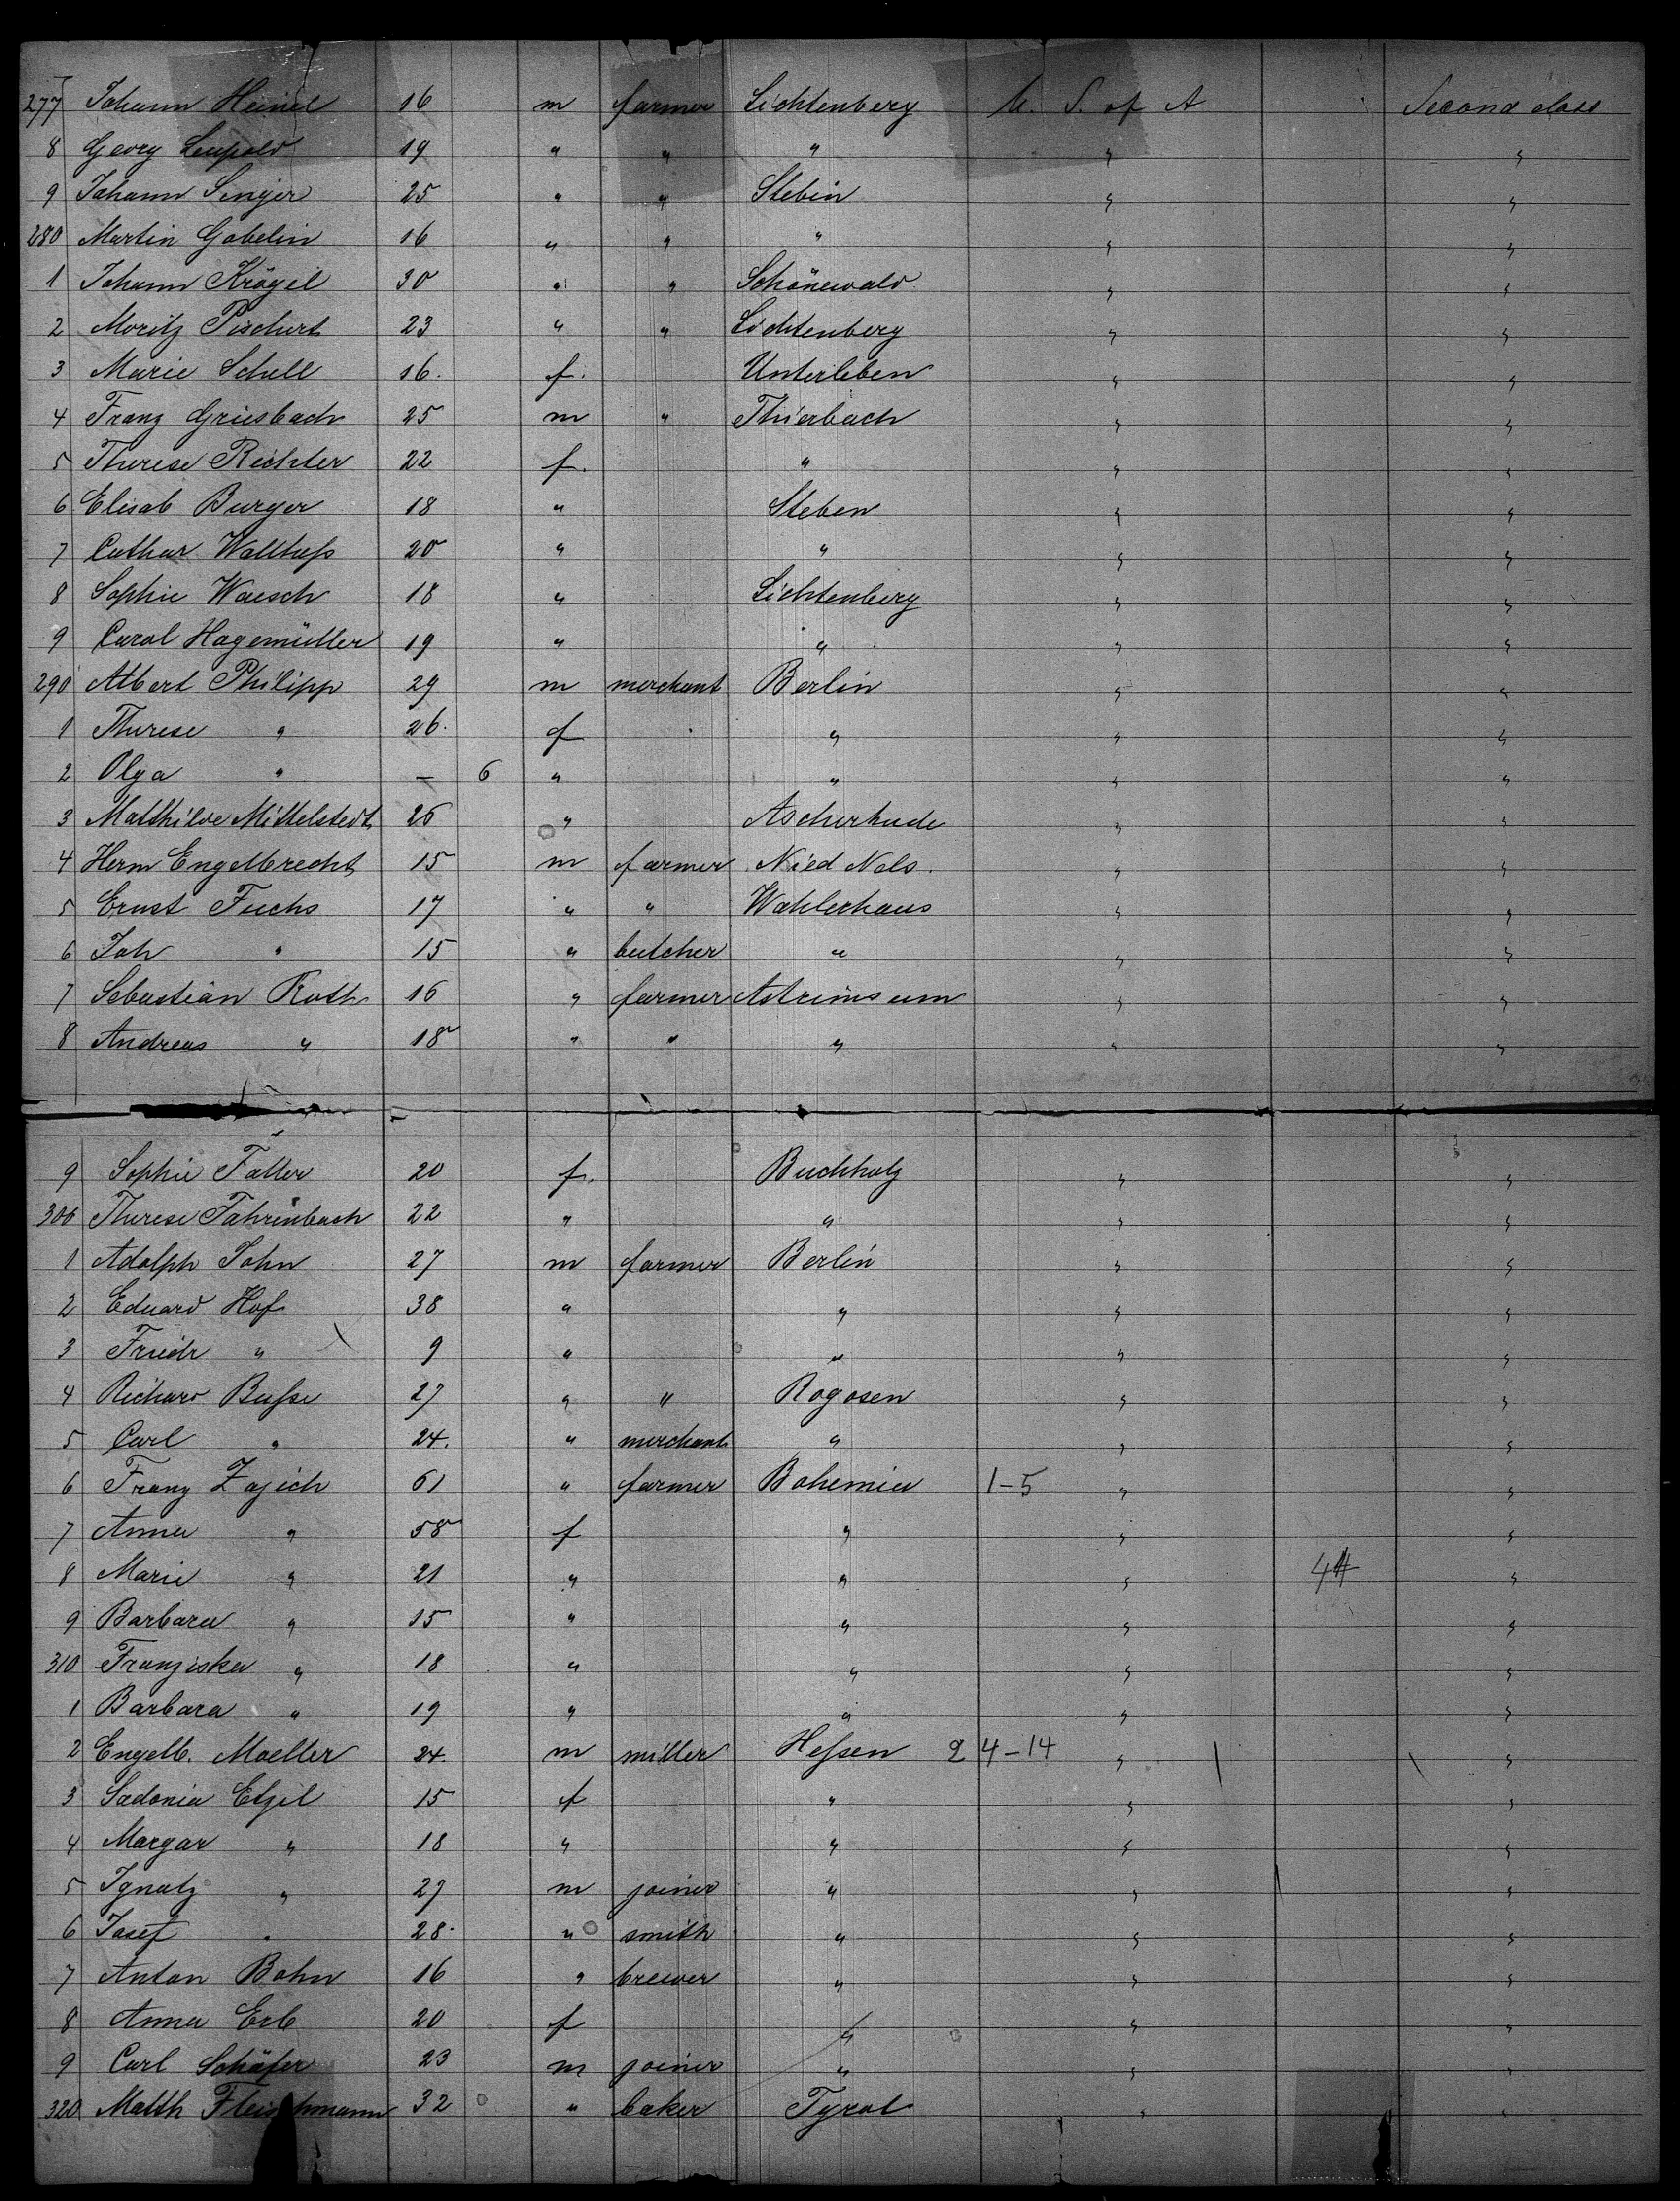 277 Johann Heinel 16 m farmer Lichtenberg U. S. of A Second class
8 Georg Leupold 19 " " " " "
9 Johann Singer 25 " " Stebin " "
280 Martin Gabelin 16 " " " " "
1 Johann Krögel 30 " " Schönewald " "
2 Moritz Pischert 23 " " Lichtenberg " "
3 Marie Schell 16. f. Unterleben " "
4 Franz Griesbach 25 m " Thierbach " "
5 Therese Richter 22 f. " " "
6 Elisab Burger 18 " Steben " "
7 Cathar 20 " " " "
8 Sophie Waesch 18 " Lichtenberg " "
9 Carol Hagemüller 19 " " " "
290 Albert Philipp 29 m merchant Berlin " "
1 Therese " 26. f " " "
2 Olga " — 6 " " " "
3 Matthilde Mittelstedt 26 " Ascherhude " "
4 Herm Engelbrecht 15 m farmer Nied Nols. " "
5 Ernst Fuchs 17 " " Wahlerhaus " "
6 Joh " 15 " butcher " " "
7 Sebastian Roth 16 " farmer " "
8 Andreas " 18 " " " " "
9 Sophie Faller 20 f. Buchholz " "
300 Therese Fahrenbach 22 " " " "
1 Adolph John 27 m farmer Berlin " "
2 Eduard Hof 38 " " " "
3 Friedr " 9 " " " "
4 Richard Busse 27 " " Rogosen " "
5 Carl " 24. " merchant " " "
6 Franz Zajich 61 " farmer Bohemia 1-5 " "
7 Anna " 58 f " " "
8 Marie " 21 " " " "
9 Barbara " 15 " " " "
310 Franziska " 18 " " " "
1 Barbara " 19 " " " "
2 Engelb. Moeller 24. m miller Hessen 2 4-14 " "
3 Sadonia Etzel 15 f " " "
4 Margar " 18 " " " "
5 Ignatz " 27 m joiner " " "
6 Josef " 28. " smith " " "
7 Anton Bohn 16 " brewer " " "
8 Anna Erb 20 f " " "
9 Carl Schäfer 23 m joiner " " "
320 Matth Fleischmann 32 " baker Tyrol " "